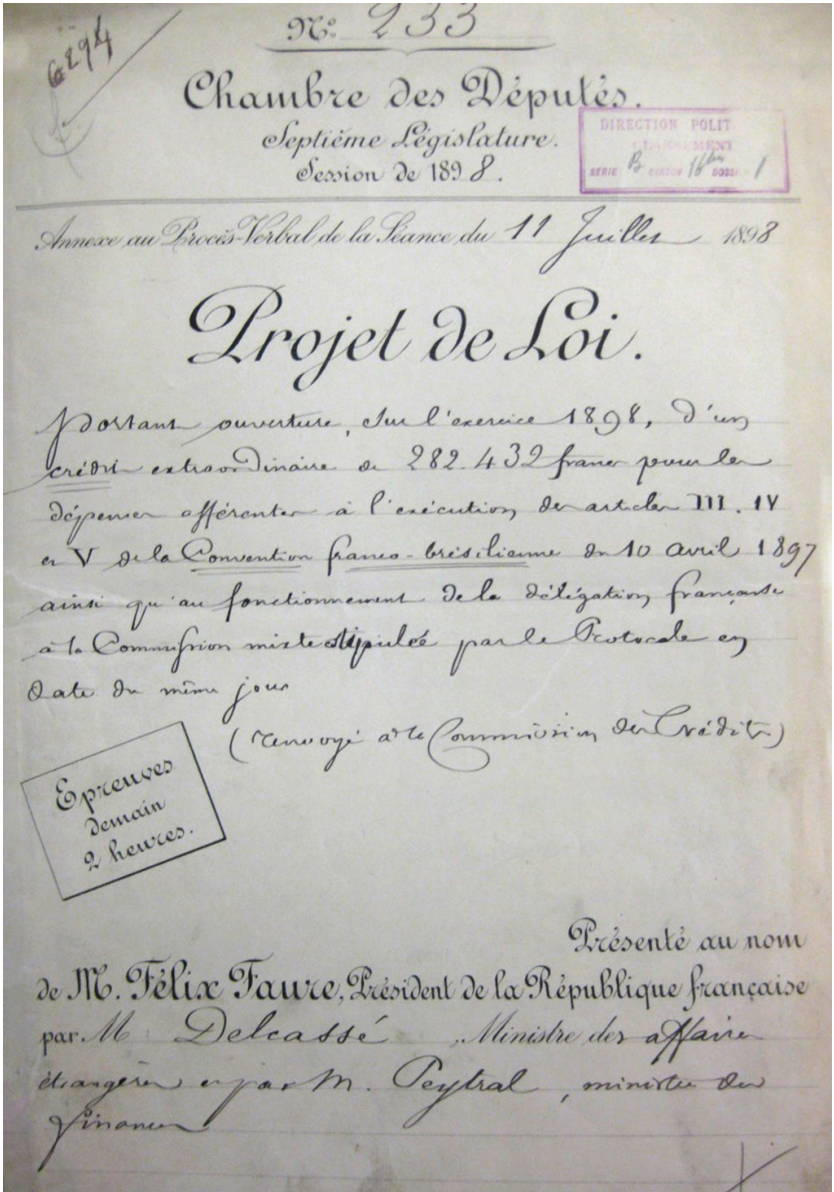 6294
N° 233
Chambre des Députés.
Septième Législature.
Session de 1898.
DIRECTION POLIT
CLASSEMENT
SERIE B CARTON 16 bis DOSSIER 1
Annexe au Procès-Verbal de la Séance du 11 Juillet 1898
Projet de Loi.
portant ouverture, sur l'exercice 1898, d'un
crédit extraordinaire de 282.432 francs pour les
dépenses afférentes à l'exécution des articles III. IV
et V de la Convention franco-brésilienne du 10 avril 1897
ainsi qu'au fonctionnement de la délégation française
à la Commission mixte stipulée par le Protocole en
date du même jour
(renvoyé à la Commission des Crédits)
Epreuves
demain
2 heures.
Présenté au nom
de M. Félix Faure, Président de la République française
par M Delcassé, Ministre des affaires
étrangères et par M. Peytral, ministre des
finances